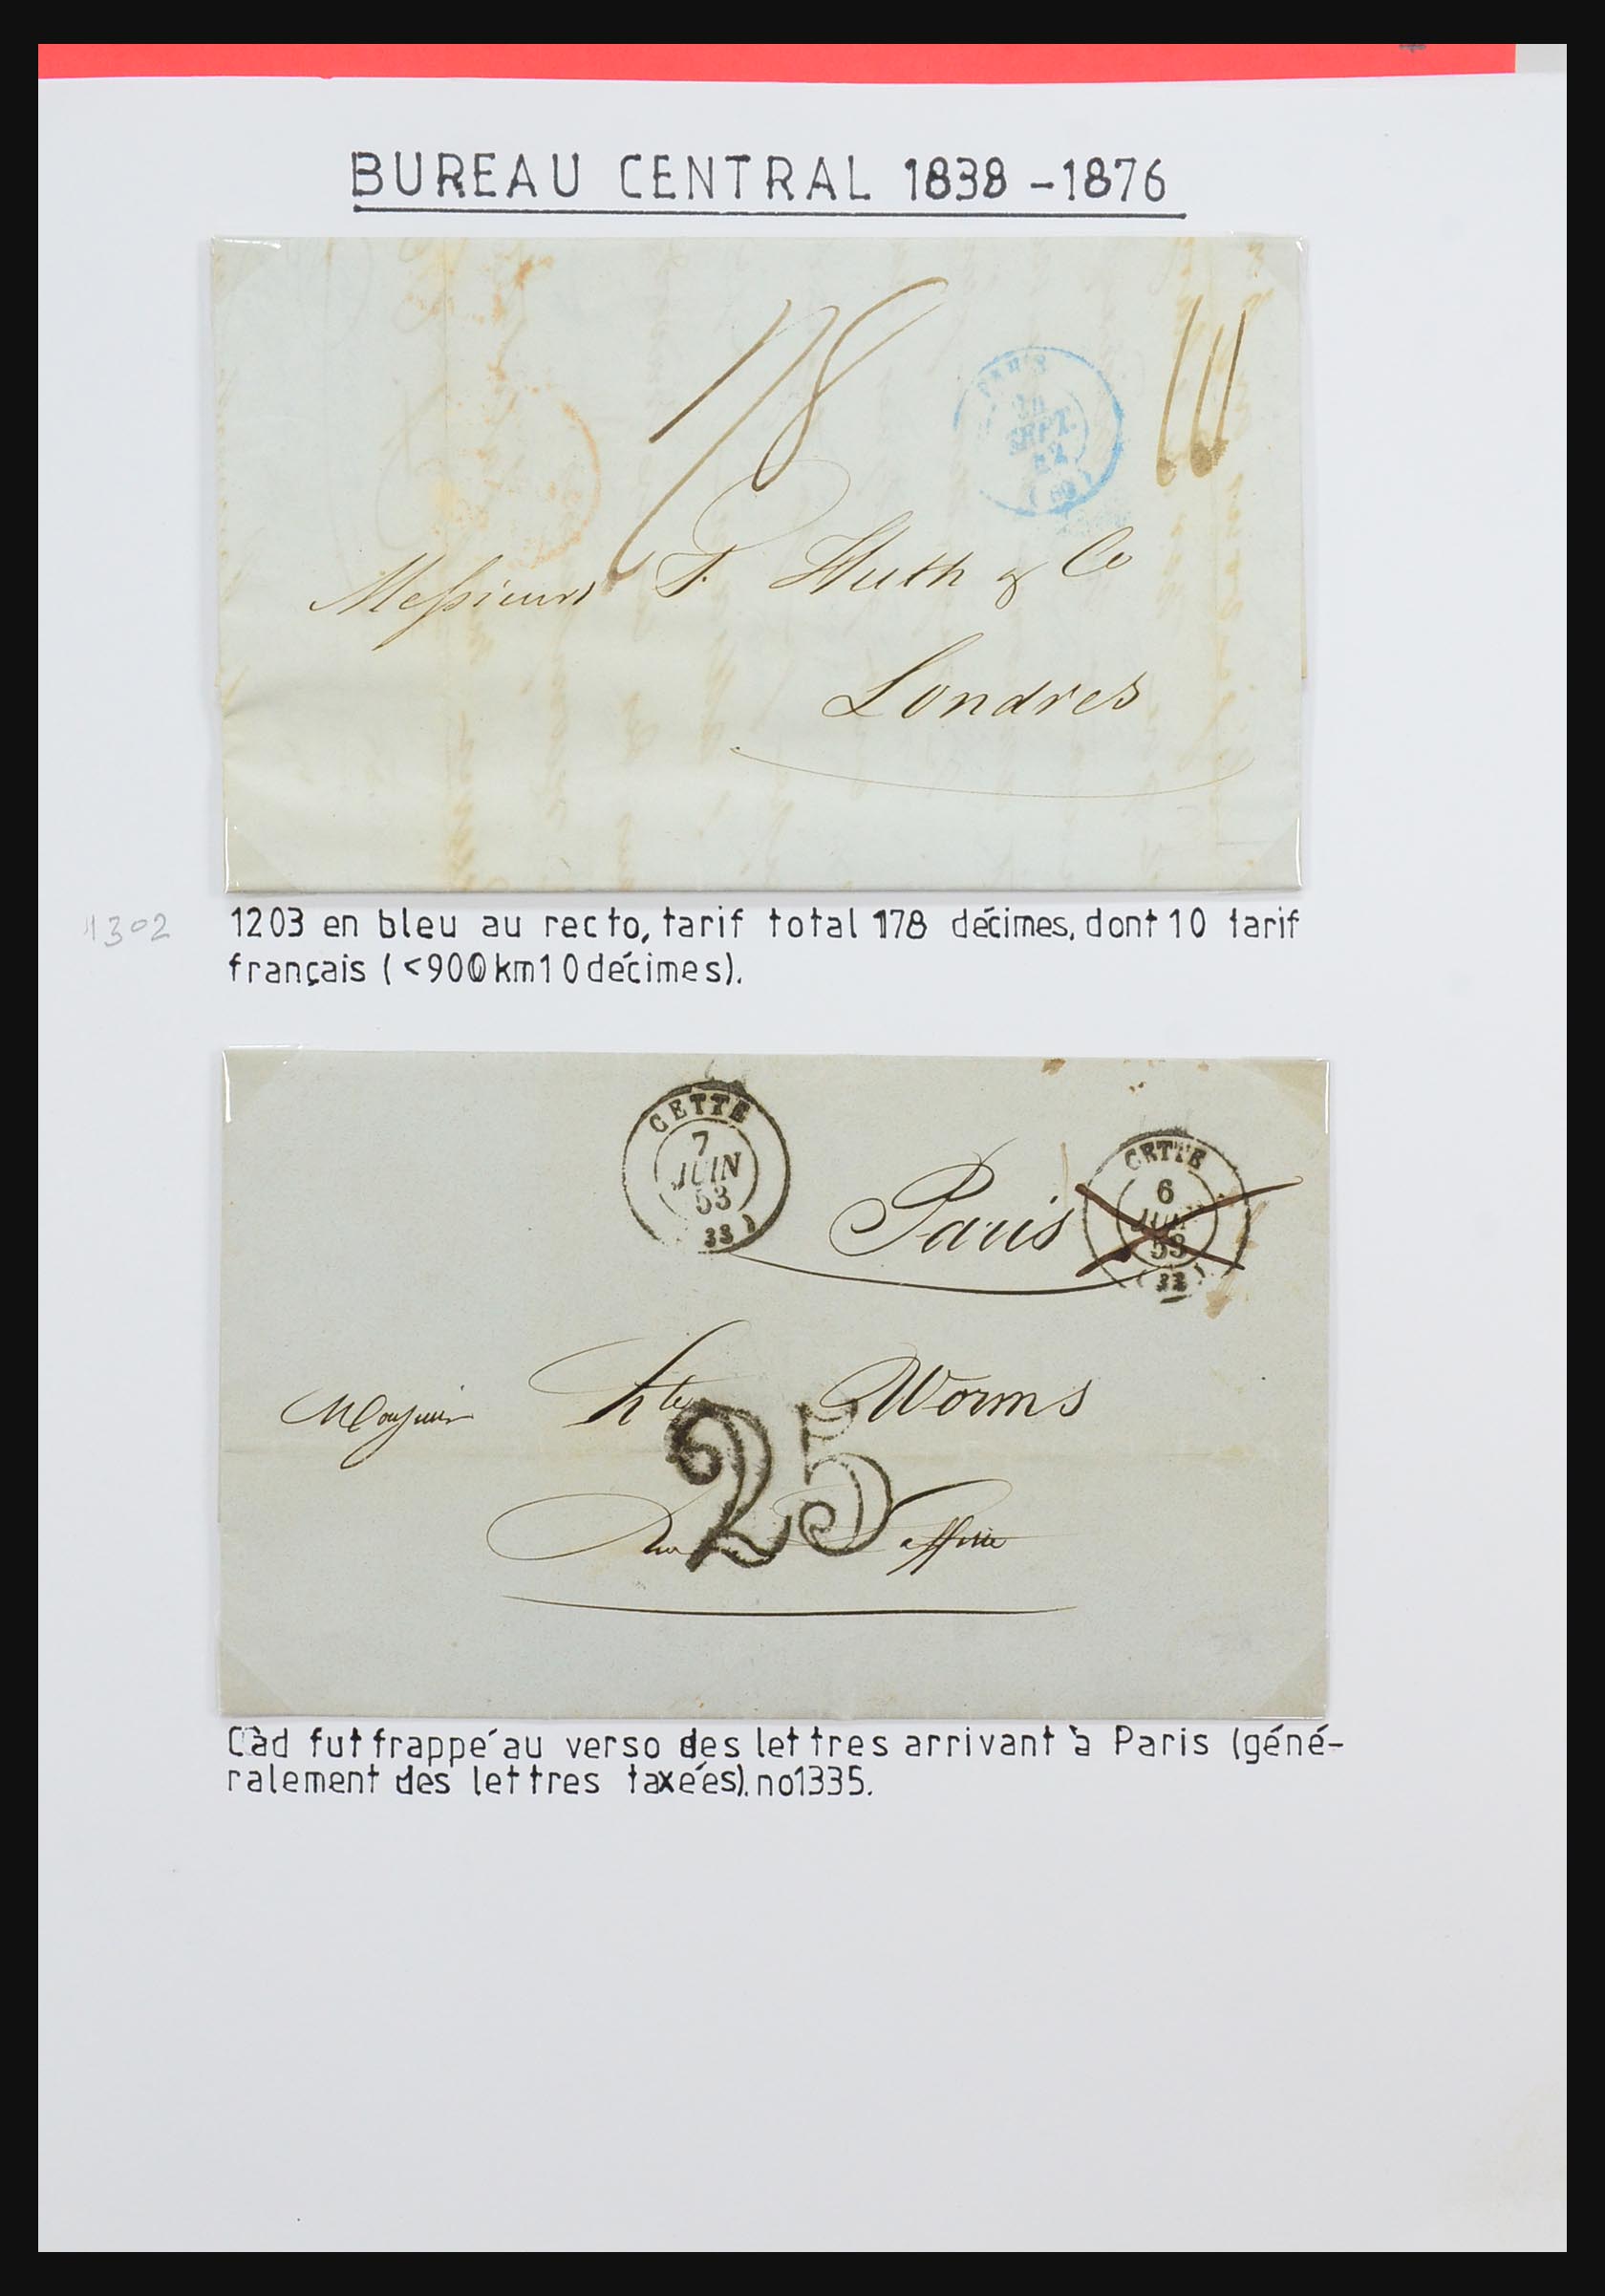 BUREAU CENTRAL 1838-1876
178
PARIS
SEPT.
(60)
Messieurs F. Huth & Co
Londres
1302
1203 en bleu au recto, tarif total 178 décimes, dont 10 tarif
français (<900km10décimes).
CETTE
7
JUIN
53
Paris
CETTE
6
JUIN
53
Monsieur Hte Worms
25
Rue Laffitte
Càd fut frappé au verso des lettres arrivant à Paris (géné-
ralement des lettres taxées).no1335.